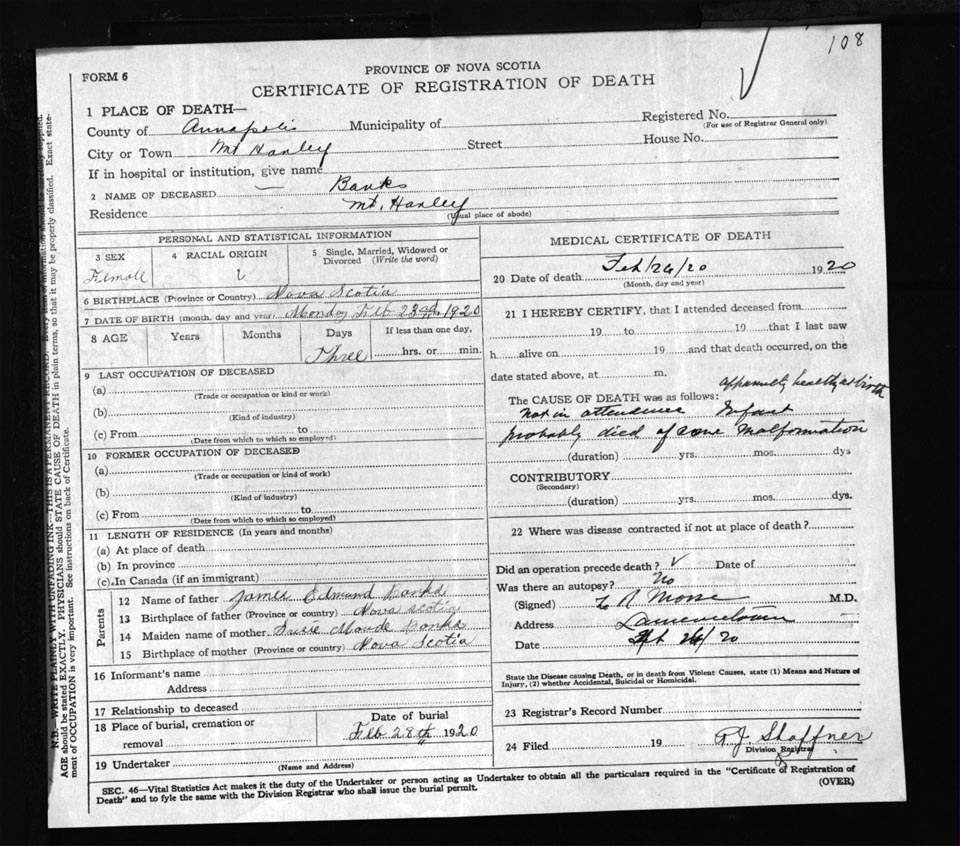 108
FORM 6
PROVINCE OF NOVA SCOTIA
CERTIFICATE OF REGISTRATION OF DEATH
1 PLACE OF DEATH—
County of Annapolis Municipality of
Registered No.
(For use of Registrar General only)
City or Town Mt Hanley Street House No.
If in hospital or institution, give name
2 NAME OF DECEASED — Banks
Residence Mt. Hanley
(Usual place of abode)
PERSONAL AND STATISTICAL INFORMATION
3 SEX
Female
4 RACIAL ORIGIN
5 Single, Married, Widowed or Divorced (Write the word)
6 BIRTHPLACE (Province or Country) Nova Scotia
7 DATE OF BIRTH (month, day and year) Monday Feb 23rd, 1920
8 AGE Years Months Days If less than one day,
Three hrs. or min.
9 LAST OCCUPATION OF DECEASED
(a)
(Trade or occupation or kind or work)
(b)
(Kind of industry)
(c) From to
(Date from which to which so employed)
10 FORMER OCCUPATION OF DECEASED
(a)
(Trade or occupation or kind of work)
(b)
(Kind of industry)
(c) From to
(Date from which to which so employed)
11 LENGTH OF RESIDENCE (In years and months)
(a) At place of death
(b) In province
(c) In Canada (if an immigrant)
Parents
12 Name of father James Edmund Banks
13 Birthplace of father (Province or country) Nova Scotia
14 Maiden name of mother Susie Maude Banks
15 Birthplace of mother (Province or country) Nova Scotia
16 Informant's name
Address
17 Relationship to deceased
18 Place of burial, cremation or
removal
Date of burial
Feb 28th 1920
19 Undertaker
(Name and Address)
MEDICAL CERTIFICATE OF DEATH
20 Date of death Feb/26/20 1920
(Month, day and year)
21 I HEREBY CERTIFY, that I attended deceased from
19 to 19 that I last saw
h alive on 19 and that death occurred, on the
date stated above, at m.
apparently healthy at birth
The CAUSE OF DEATH was as follows:
Not in attendance Infant
probably died of some malformation
(duration) yrs. mos. dys
CONTRIBUTORY
(Secondary)
(duration) yrs. mos. dys.
22 Where was disease contracted if not at place of death?
Did an operation precede death? Date of
Was there an autopsy? No
(Signed) R Morse M.D.
Address Lawrencetown
Date Feb 26/20
State the Disease causing Death, or in death from Violent Causes, state (1) Means and Nature of
Injury, (2) whether Accidental, Suicidal or Homicidal.
23 Registrar's Record Number
24 Filed 19 Shaffner
Division Registrar
SEC. 46—Vital Statistics Act makes it the duty of the Undertaker or person acting as Undertaker to obtain all the particulars required in the "Certificate of Registration of
Death" and to fyle the same with the Division Registrar who shall issue the burial permit.
(OVER)
N.B. WRITE PLAINLY WITH UNFADING INK—THIS IS A PERMANENT RECORD. Every item of information should be carefully supplied.
AGE should be stated EXACTLY. PHYSICIANS should STATE CAUSE OF DEATH in plain terms, so that it may be properly classified. Exact state-
ment of OCCUPATION is very important. See instructions on back of Certificate.